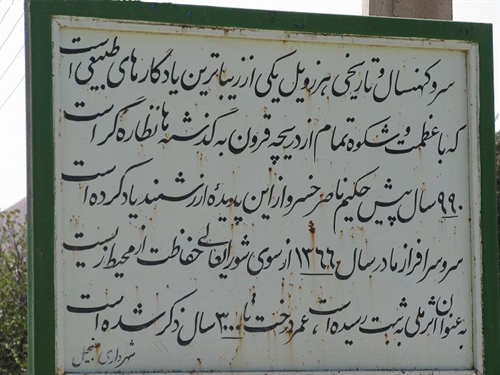 سرو کهنسال و تاریخی هرزویل یکی از زیباترین یادگارهای طبیعی است
که با عظمت و شکوه تمام از دریچه قرون به گذشته ها نظاره گر است
۹۹۰ سال پیش حکیم ناصر خسرو از این پدیده ارزشمند یاد کرده است
سرو سرافراز ما در سال ۱۳۶۶ از سوی شورایعالی حفاظت از محیط زیست
به عنوان اثر ملی به ثبت رسیده است ، عمر درخت تا ۳۰۰۰ سال ذکر شده است
شهرداری منجیل